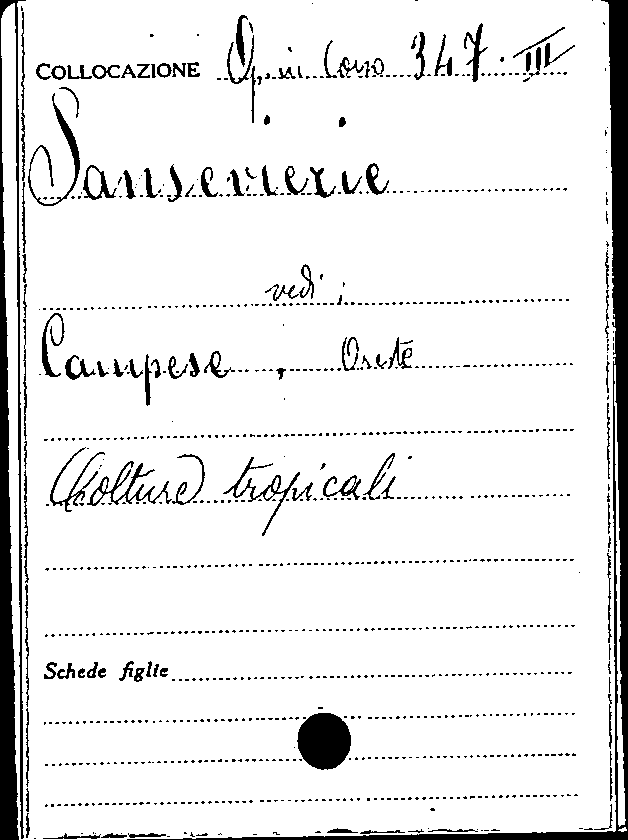 COLLOCAZIONE Op. in Corso 347. III
Sansevierie
vedi:
Campese, Oreste
(Colture) tropicali
Schede figlie